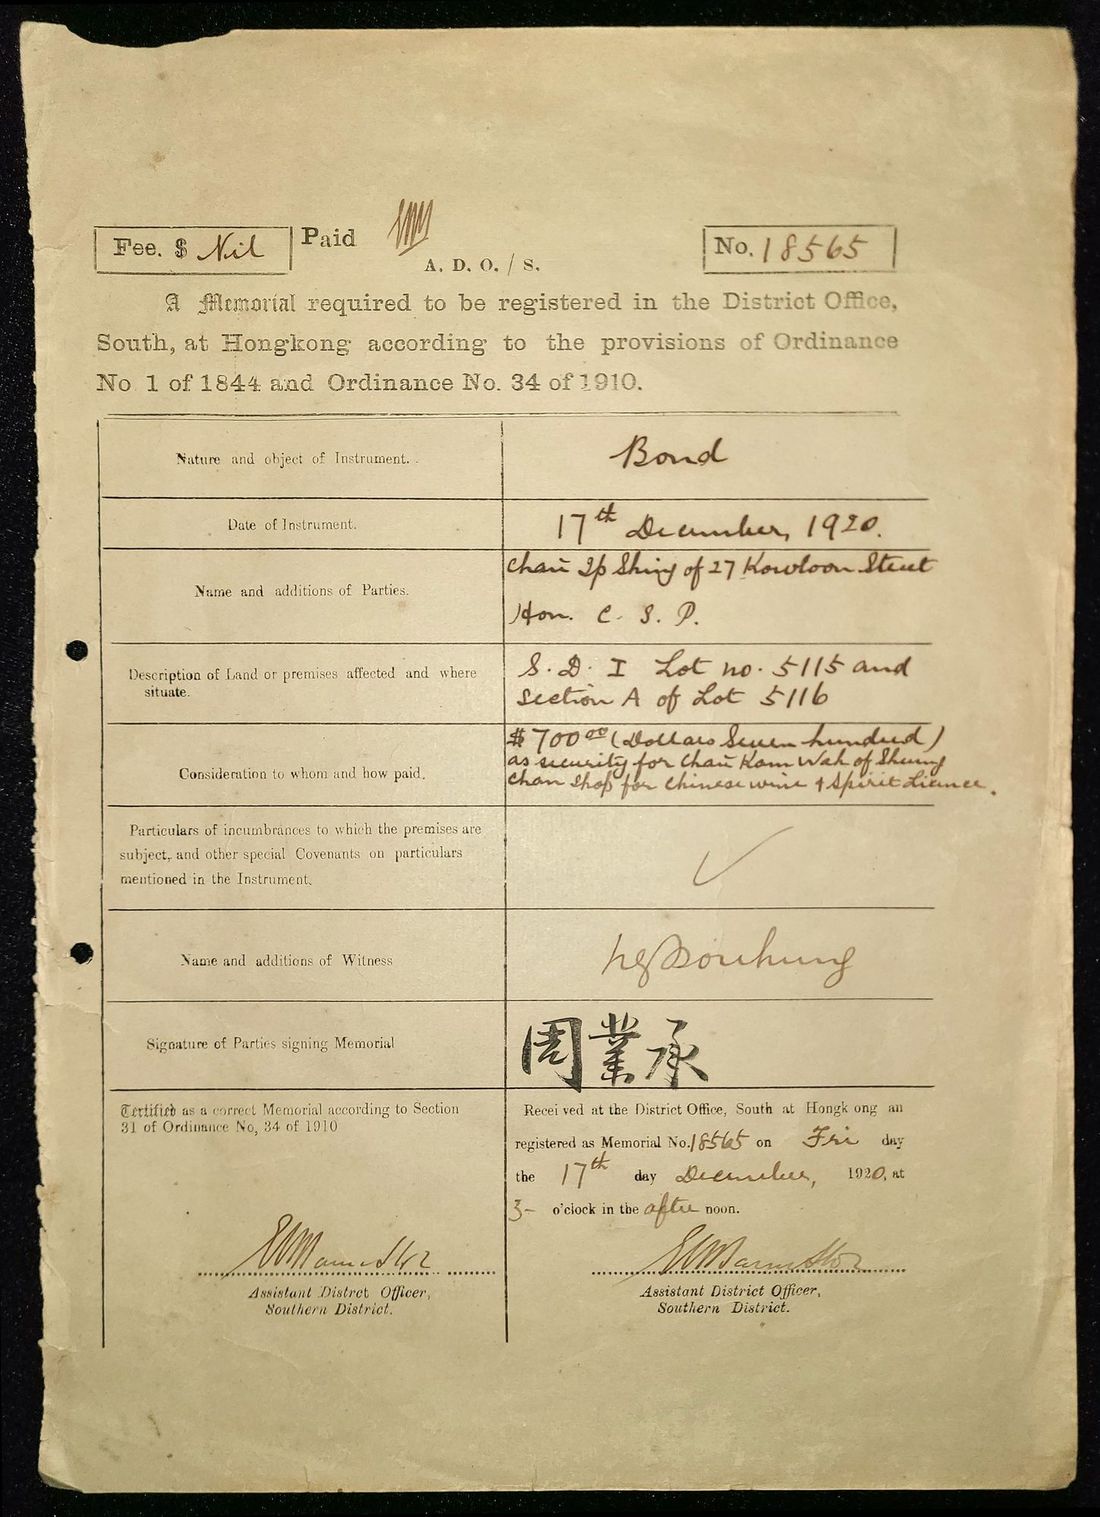 Fee. $ Nil Paid
A. D. O. / S.
No. 18565
A Memorial required to be registered in the District Office,
South, at Hongkong according to the provisions of Ordinance
No 1 of 1844 and Ordinance No. 34 of 1910.
Nature and object of Instrument.
Bond
Date of Instrument.
17th December, 1920.
Name and additions of Parties.
Chau Ip Shing of 27 Kowloon Street
Hon. C. S. P.
Description of Land or premises affected and where
situate.
S. D. I Lot no. 5115 and
Section A of Lot 5116
Consideration to whom and how paid.
$700 00 (Dollars Seven hundred)
as security for Chau Kam Wah of Shung
Chan Shop for Chinese wine & Spirit Licence.
Particulars of incumbrances to which the premises are
subject, and other special Covenants on particulars
mentioned in the Instrument.
Name and additions of Witness
Signature of Parties signing Memorial
周業承
Certified as a correct Memorial according to Section
31 of Ordinance No, 34 of 1910
Assistant Distrct Officer,
Southern District.
Recei ved at the District Office, South at Hongk ong an
registered as Memorial No. 18565 on Fri day
the 17th day December, 1920, at
3- o'clock in the after noon.
Assistant District Officer,
Southern District.